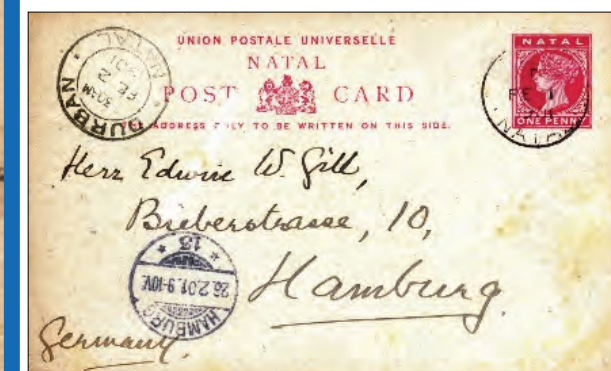 UNION POSTALE UNIVERSELLE
NATAL
POST CARD
ADDRESS ONLY TO BE WRITTEN ON THIS SIDE.
NATAL
ONE PENNY
DURBAN
FE 2
NATAL
FE 1
NATAL
Herr Edwin W. Gill,
Bieberstrasse, 10,
Hamburg.
Germany.
* 13 *
26.2.01.9-10V.
HAMBURG